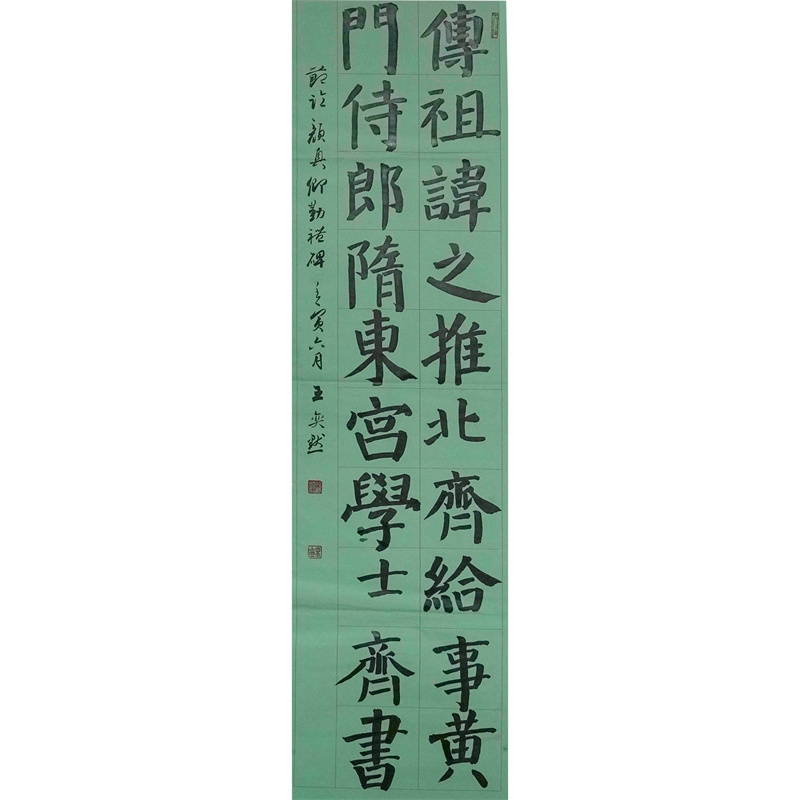 傳祖諱之推北齊給事黄
門侍郎隋東宮學士齊書
節臨顏真卿勤禮碑 壬寅六月 王奕然